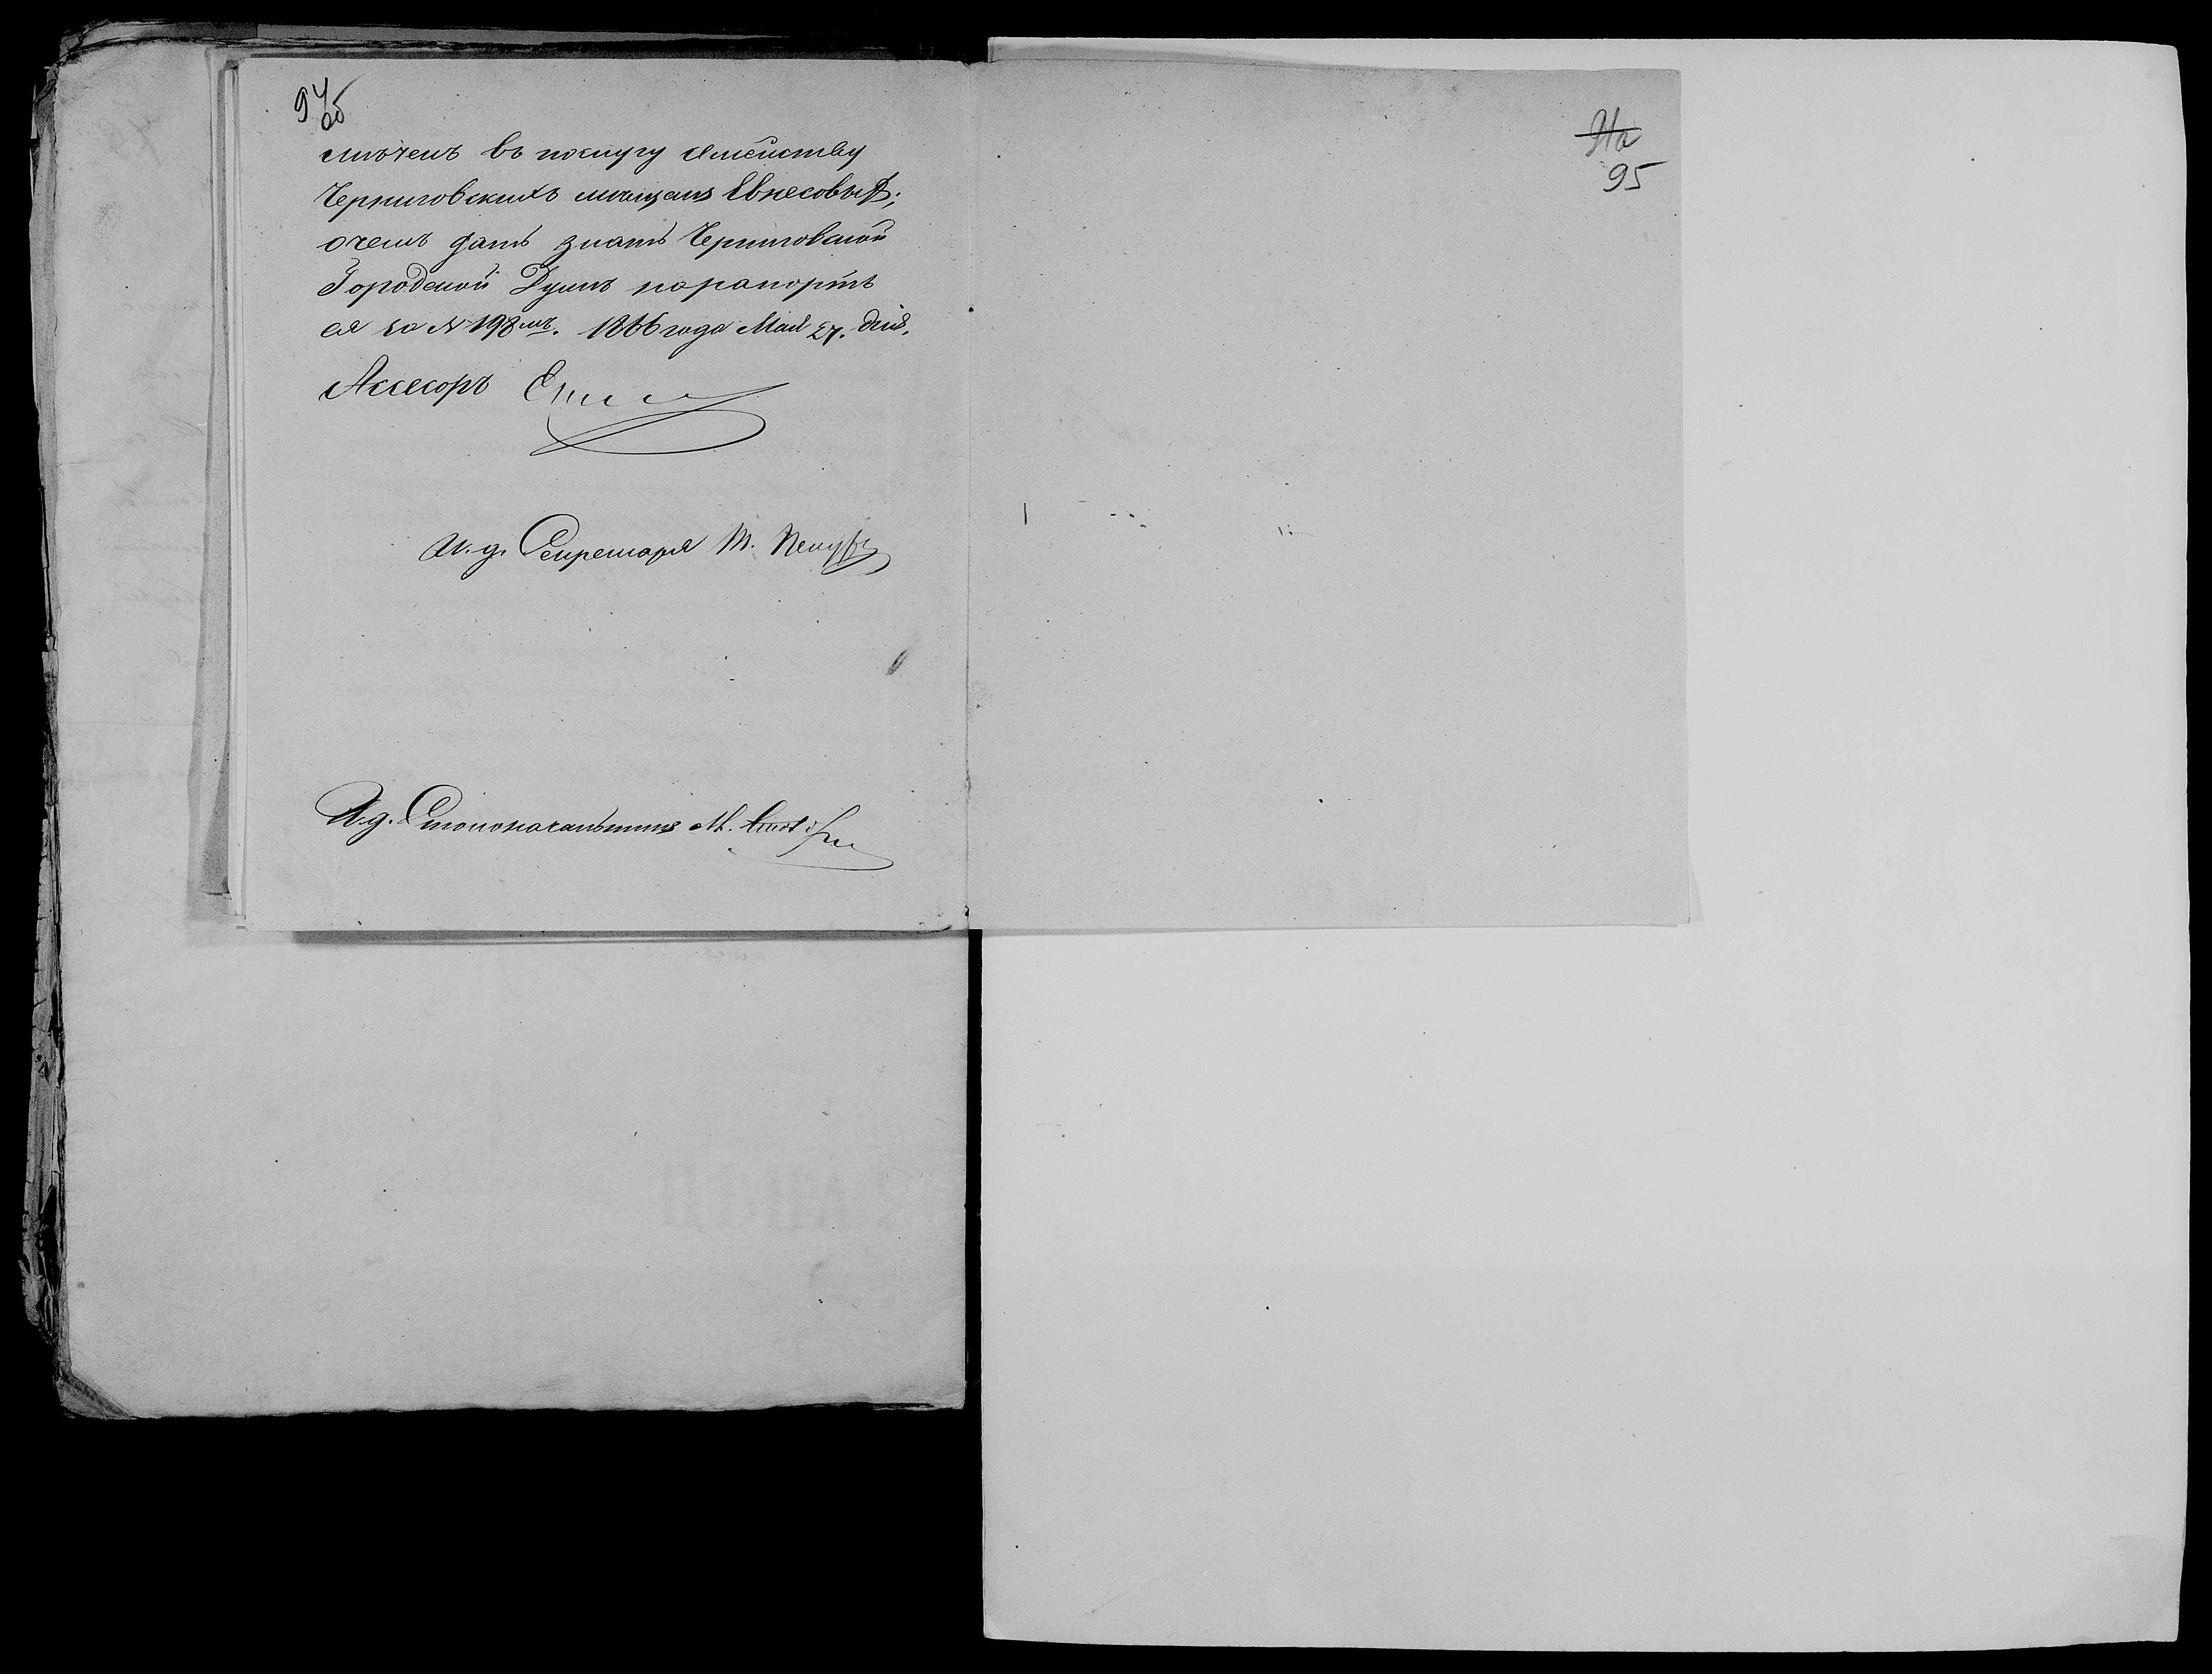 94
об
мѣченъ въ послугу семейству
Черниговскихъ мѣщанъ Евнесовыхъ;
о чемъ дать знать Черниговской
Городской Думѣ на рапортъ
ея за № 198мъ. 1866 года Мая 27. дня.
Ассесоръ
И. д. Секретаря
И. д. Столоначальника М.
94а
95